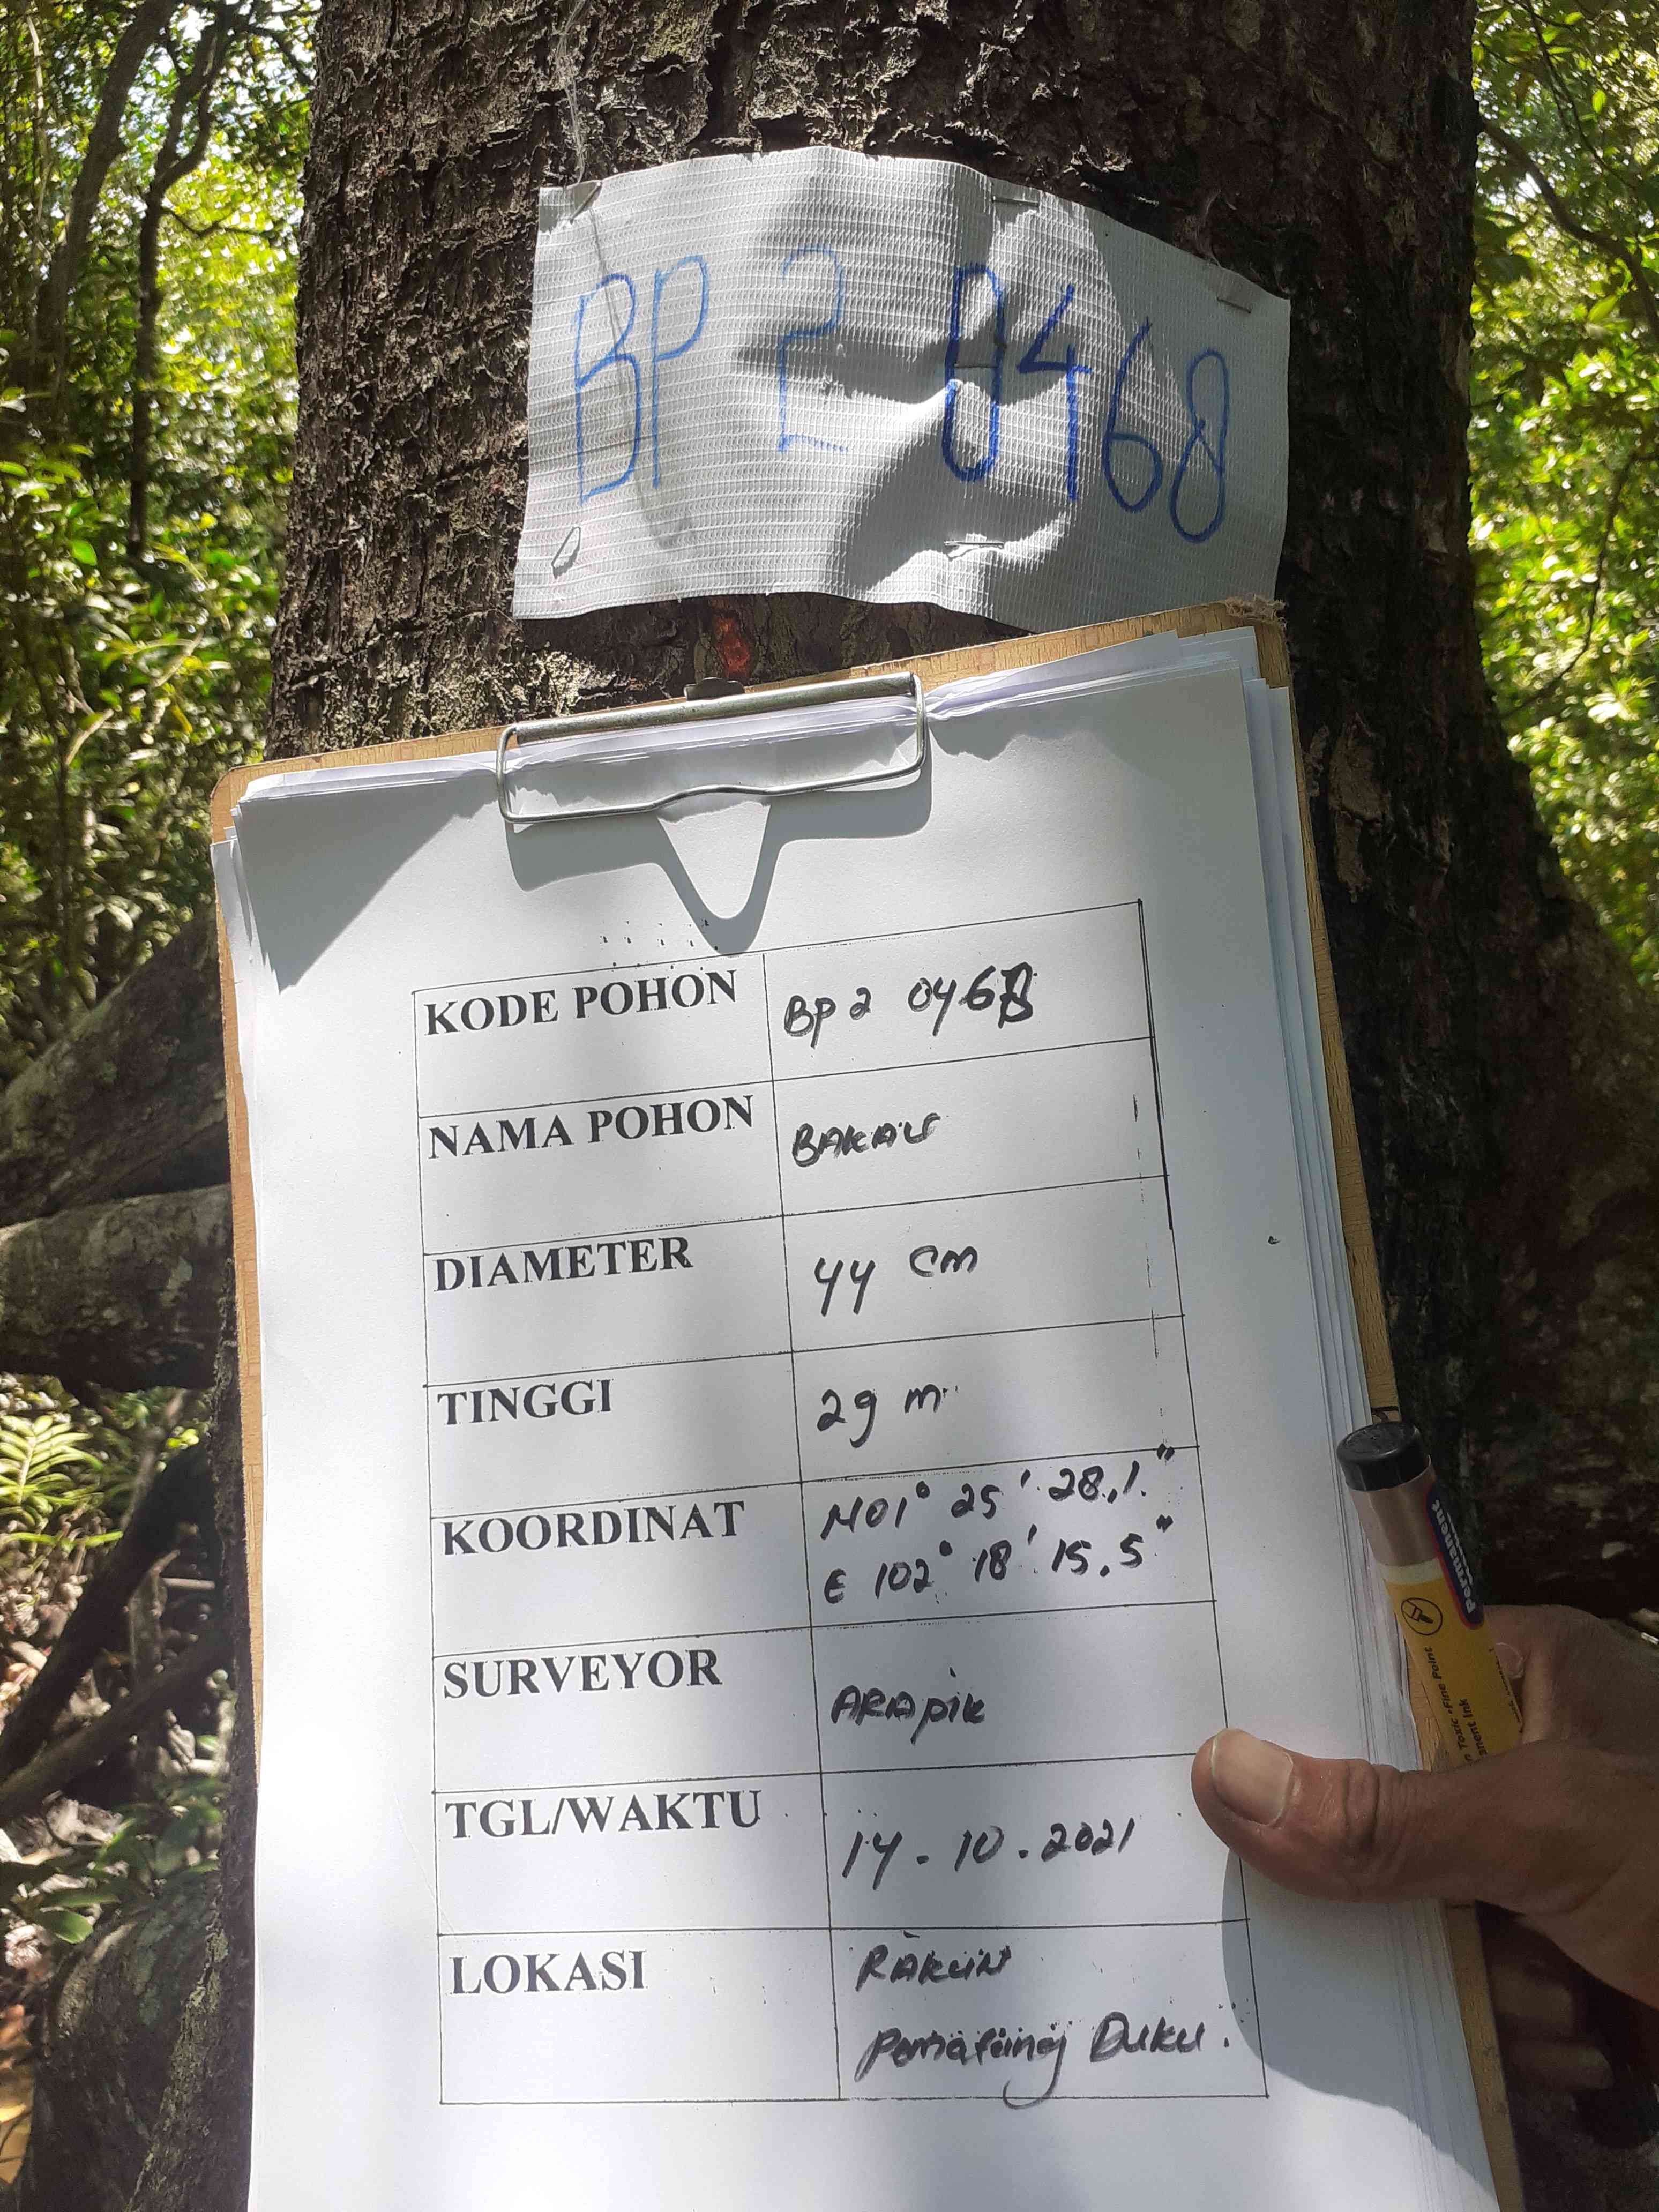 BP 2 0468
KODE POHON BP 2 0468
NAMA POHON BAKAU
DIAMETER 44 cm
TINGGI 29 m
KOORDINAT N01° 25' 28,1"
E 102° 18' 15.5"
SURVEYOR ARApik
TGL/WAKTU 14 - 10 . 2021
LOKASI
Duku .
Permanent
Toxic • Fine Point
nent Ink